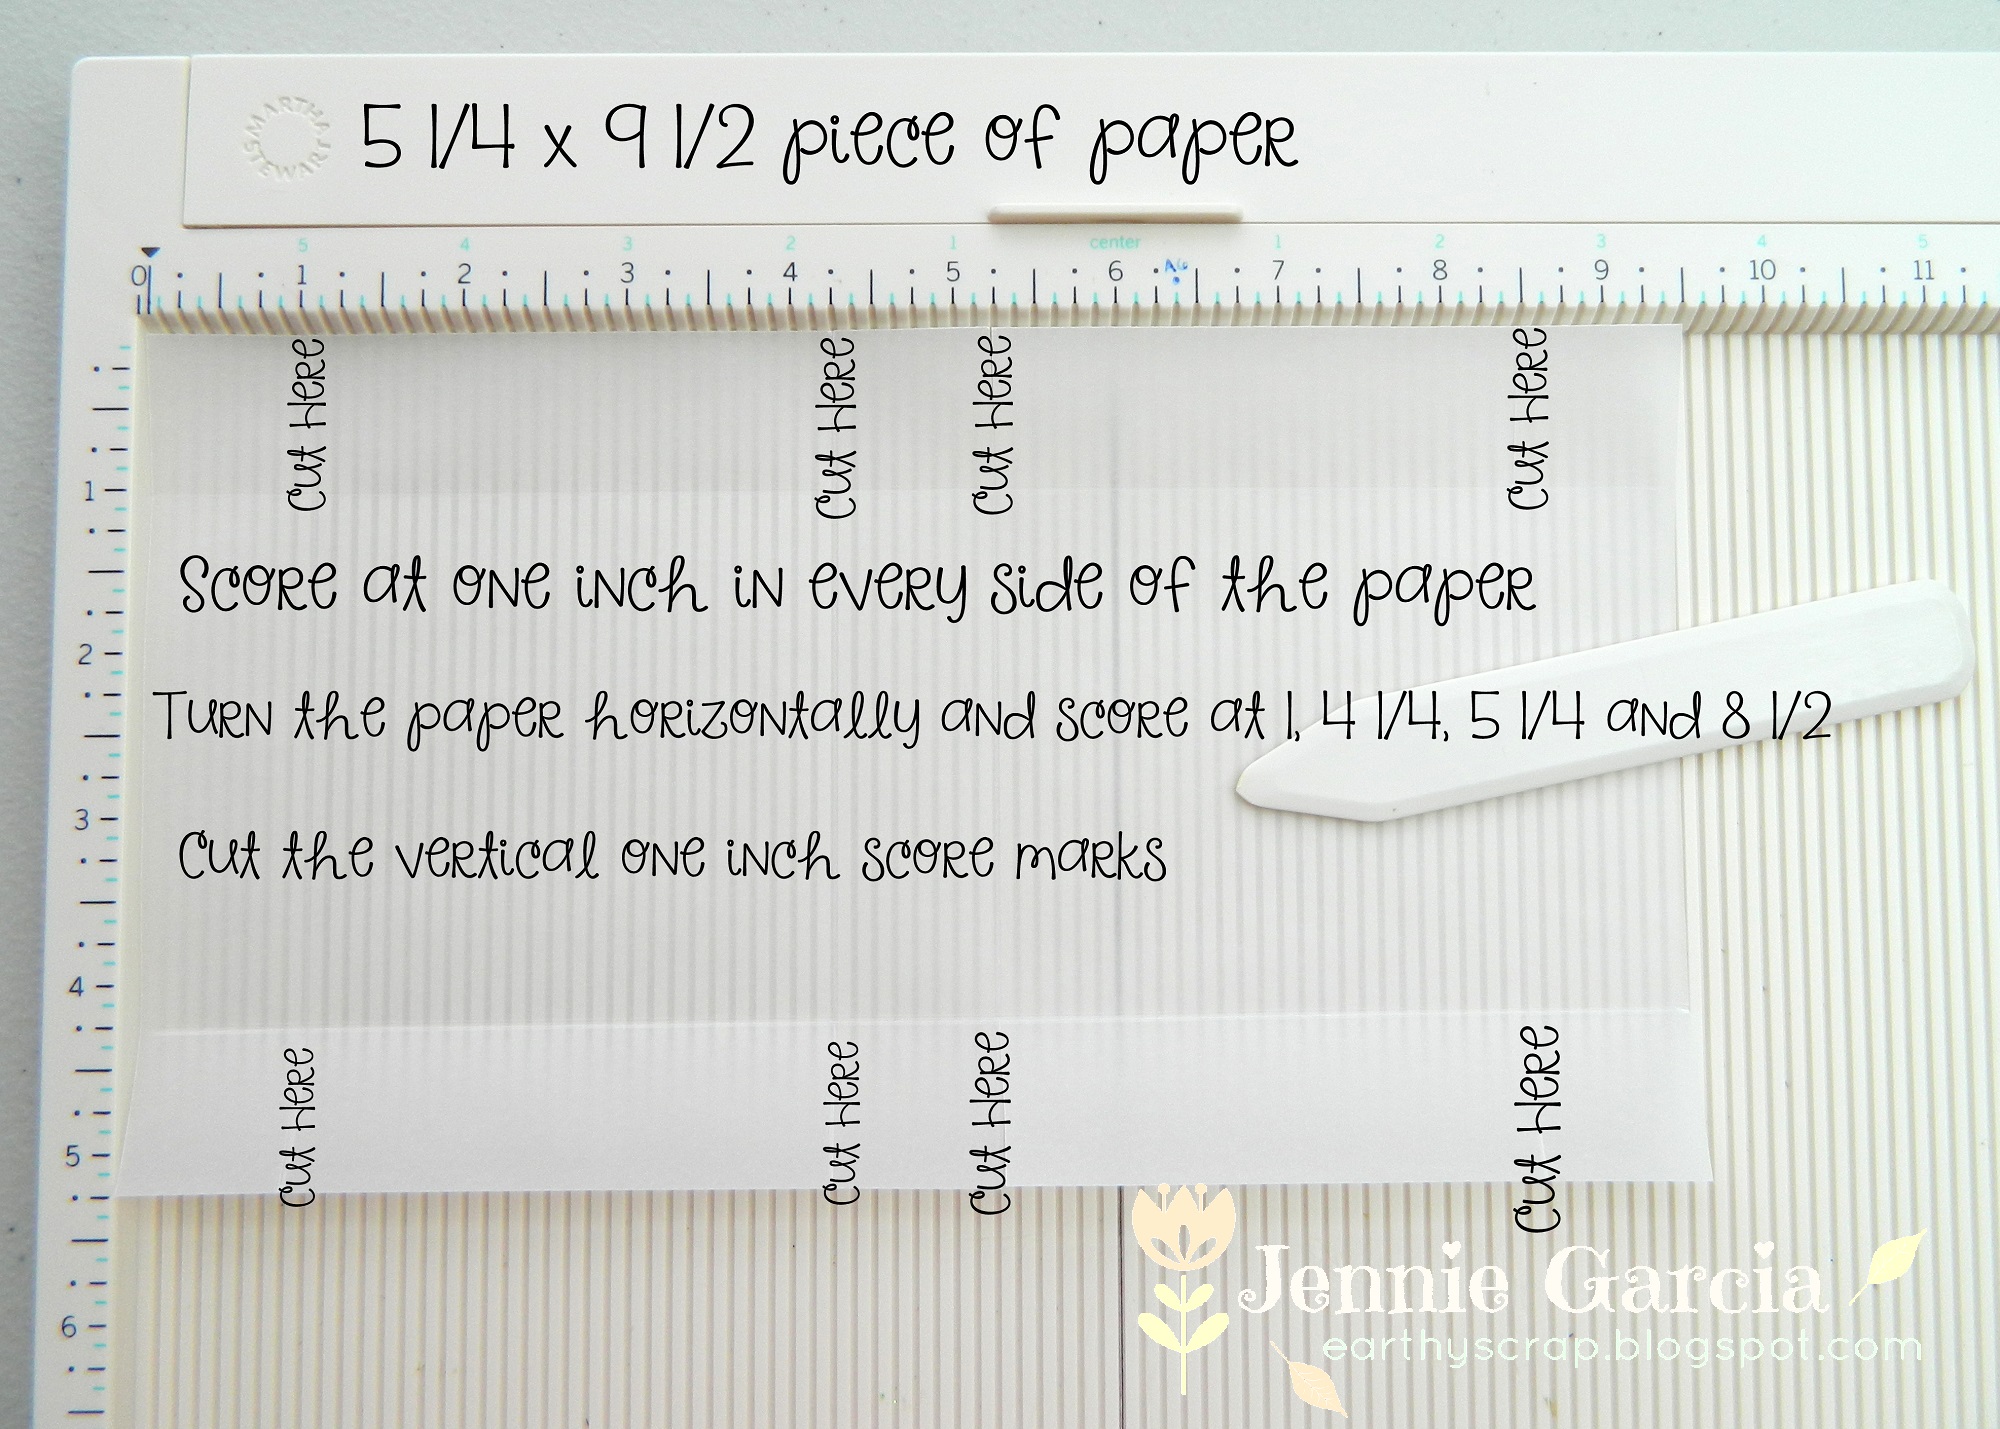 MARTHA STEWART
5 1/4 x 9 1/2 piece of paper
5 4 3 2 1 center 1 2 3 4 5
0 1 2 3 4 5 6 A6 7 8 9 10 11
Cut Here Cut Here Cut Here Cut Here
1
Score at one inch in every side of the paper
2
Turn the paper horizontally and score at 1, 4 1/4, 5 1/4 and 8 1/2
3
Cut the vertical one inch score marks
4
Cut Here Cut Here Cut Here Cut Here
5
Jennie Garcia
6
earthyscrap.blogspot.com